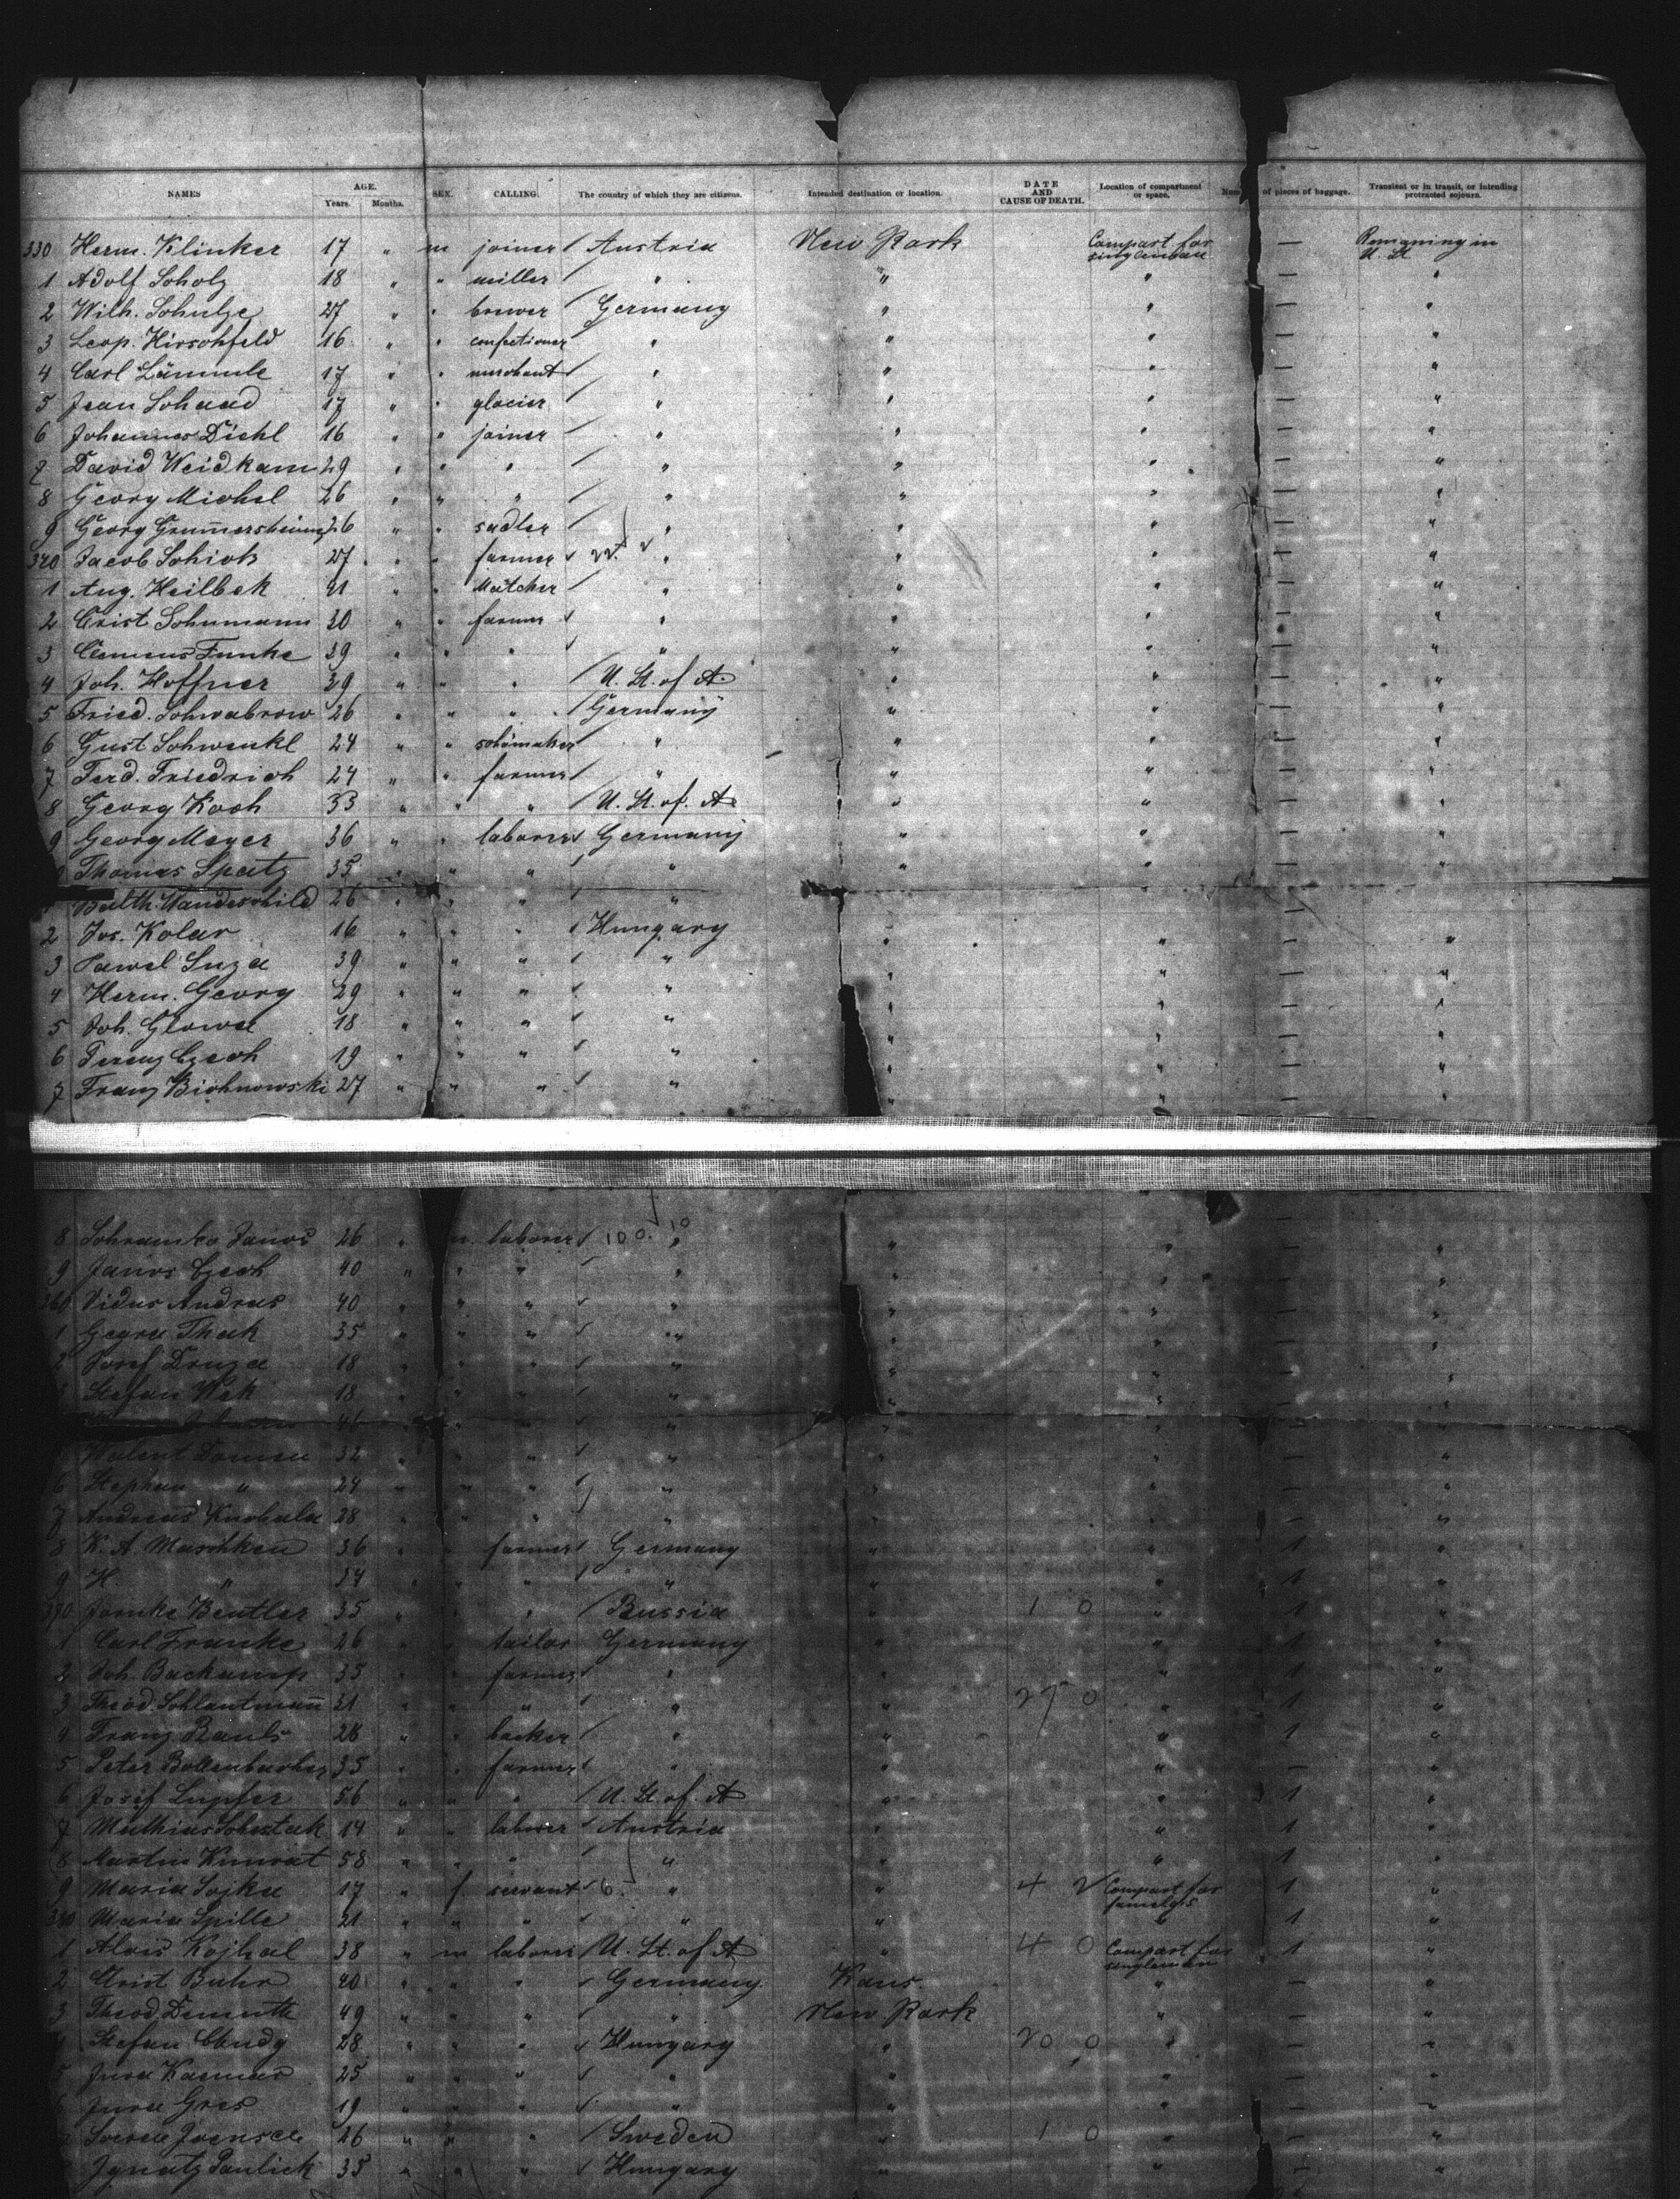 NAMES AGE. Years. Months. SEX. CALLING. The country of which they are citizens. Intended destination or location. DATE AND CAUSE OF DEATH. Location of compartment or space. of pieces of baggage. Transient or in transit, or intending protracted sojourn.
330 Herm. Klinker 17 " m joiner Austria New York Compart for singlemen — Remaining in U. St
1 Adolf Scholz 18 " " miller " " " — "
2 Wilh. Schulze 27 " " brewer Germany " " — "
3 Leop. Hirschfeld 16 " " confectioner " " " — "
4 Carl Lämmle 17 " " merchant " " " — "
5 Jean Schaad 17 " " glacier " " " — "
6 Johannes Diehl 16 " " joiner " " " — "
7 David Weidkam 29 " " " " " " — "
8 Georg Michel 26 " " " " " " — "
9 Georg 26 " " sadler " " " — "
340 Jacob Schick 27 " " farmer 22 " " " — "
1 Aug. Heilbek 21 " " " " " — "
2 Crist Schumann 30 " " farmer " " " — "
3 Clemens Funke 29 " " " " " " — "
4 Joh. Hoffner 39 " " " U. St. of A " " — "
5 Fried. Schwabrow 26 " " " Germany " " — "
6 Gust Schwenkl 24 " " " " " — "
7 Ferd. Friedrich 24 " " farmer " " " — "
8 Georg Koch 33 " " " U. St. of. A " " — "
9 Georg Meyer 36 " " laborer Germany " " — "
Thomas Spatz 35 " " " " " " — "
Balth. Wanderschild 26 " " " " —
2 Jos. Kolar 16 " " " Hungary " " — "
3 Pawel Suza 39 " " " " " " — "
4 Herm. Georg 29 " " " " " " — "
5 Joh. Glowa 18 " " " " " " — "
6 Ferenz Czech 19 " " " " " " — "
7 Franz Bichnowski 27 " " " " " " — "
8 Schramko Janos 26 " m. laborer 100. 10 " " " — "
9 Janos Czech 40 " " " " " " — "
360 Vidus Andras 40 " " " " " " — "
1 Thak 35 " " " " " " — "
2 Josef Druza 18 " " " " " " — "
3 Stefan Wak 18 " " " " " " — "
46 " " " " " " — "
Walent Domsa 32 " " " " " " — "
6 Stephan " 24 " " " " " " — "
7 Andreas Knohala 28 " " " " " " — "
8 K. A. Maschken 36 " " farmer Germany " " 1 "
9 H. " 34 " " " " " " 1 "
370 Beutler 35 " " " Russia " 1 0 " 1 "
1 Carl Franke 26 " " tailor Germany " " 1 "
2 Joh. Backamp 35 " " farmer " " " 1 "
3 Theod. Schlautmann 31 " " " " " 27 0 " 1 "
4 Franz Rauls 28 " " backer " " " 1 "
5 Peter Bollenbacher 35 " " farmer " " " — "
6 Josef Lupfer 56 " " " U. St. of. A " " 1 "
7 Mathias Schestak 14 " " laborer Austria " " 1 "
8 Martin Kunrat 58 " " " " " " 1 "
9 Maria Sojka 17 " f. servant 6. " " 4 2 Compart for 1 "
380 Maria Spille 21 " " " " " " 1 "
1 Alois Kojhal 38 " m laborer U. St. of A " 4 0 Compart for singlemen 1 "
2 Christ Buhr 40 " " " Germany. Kans. " — "
3 Theod Demuth 49 " " " " New York " — "
4 Stefan 28 " " " Hungary " 20 0 " — "
5 Jura Kasmar 25 " " " " " " — "
6 Jura Gres 19 " " " " " " — "
26 " " " Sweden " 1 0 " — "
Ignatz Paulick 35 " " " Hungary " " — "